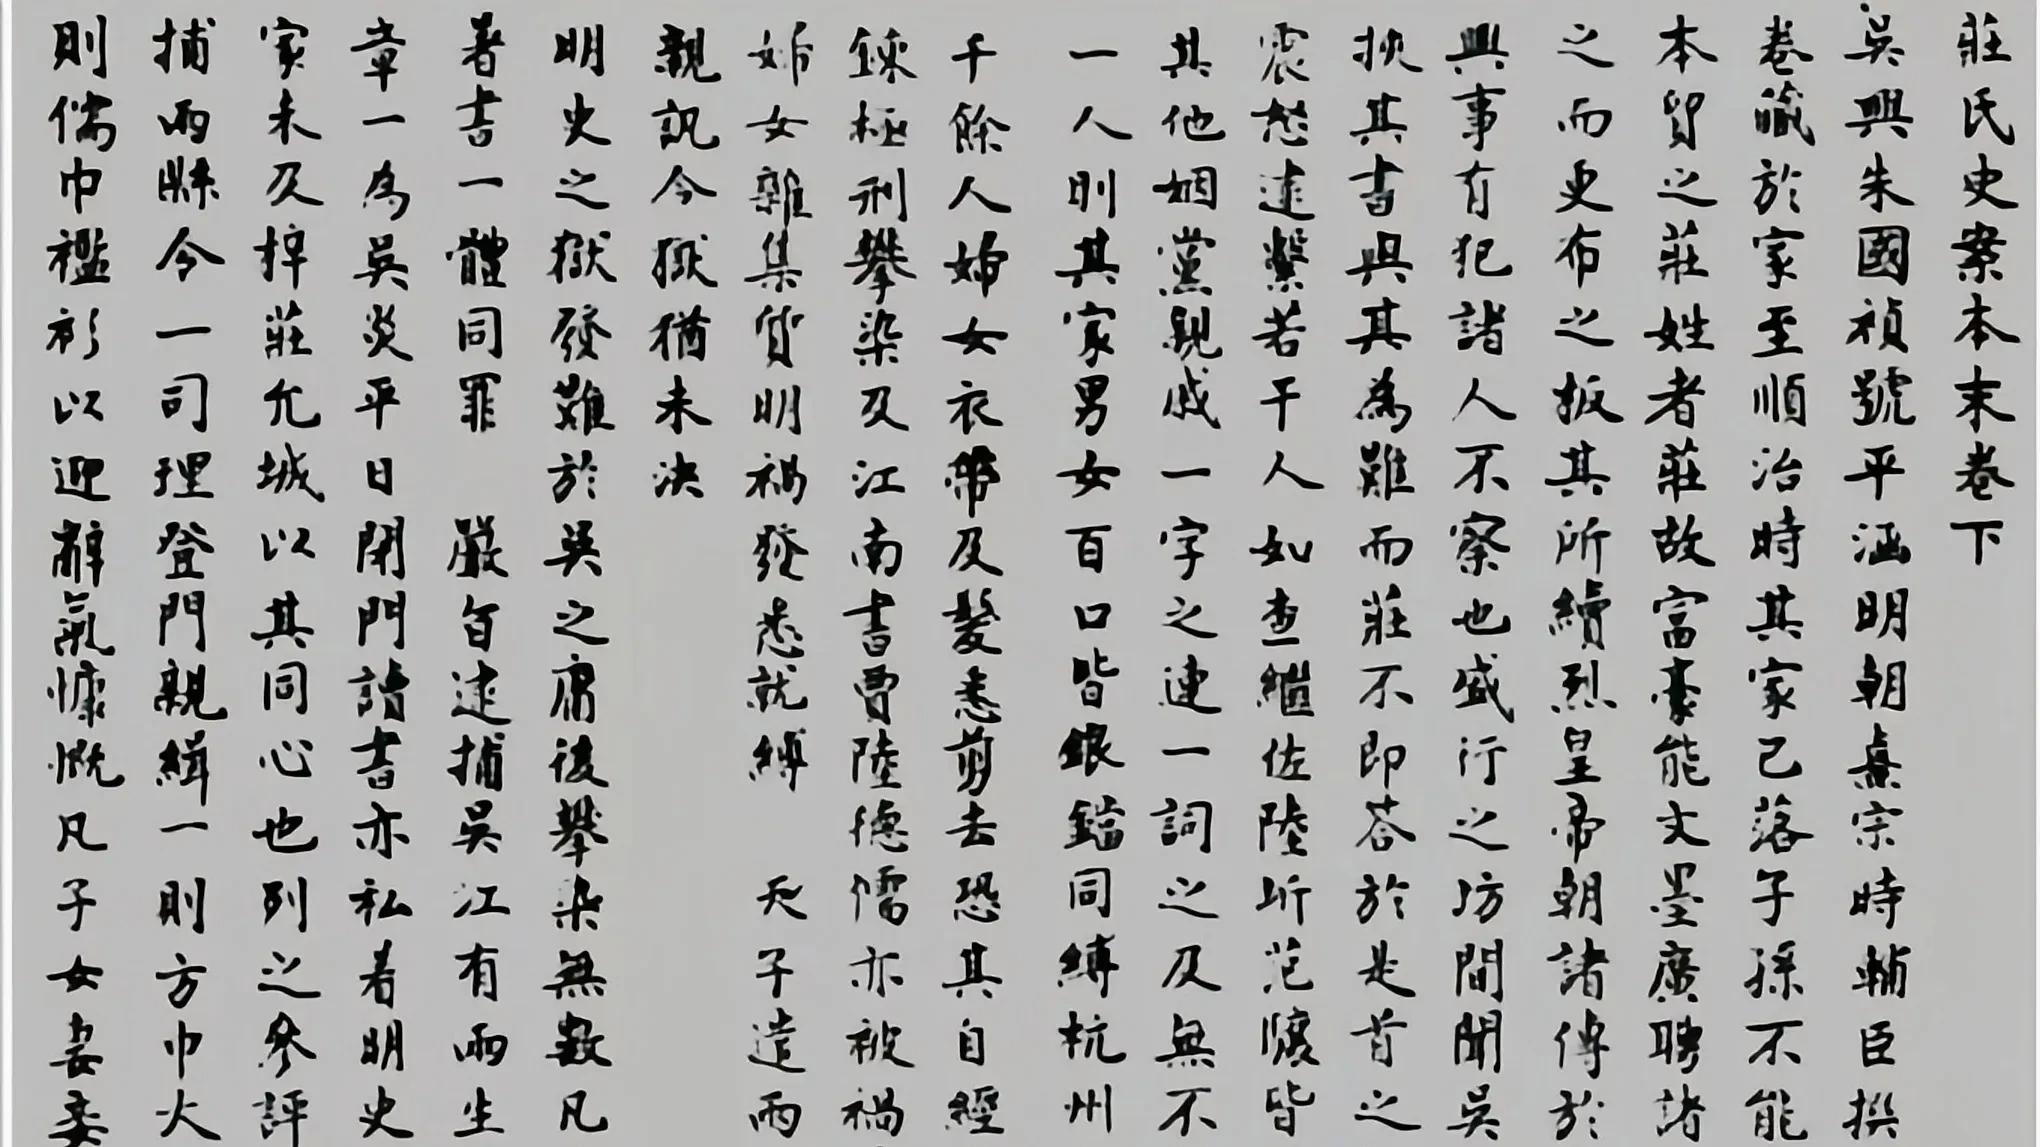 莊氏史案本末卷下
吳興朱國禎號平涵明朝熹宗時輔臣撰
卷藏於家至順治時其家已落子孫不能
本貿之莊姓者莊故富豪能文墨廣聘諸
之而更布之扳其所續烈皇帝朝諸傳於
興事有犯諸人不察也盛行之坊間聞吳
挾其書與其為難而莊不即荅於是首之
震怒逮繫若干人如查繼佐陸圻范驤皆
其他姻黨親戚一字之連一詞之及無不
一人則其家男女百口皆鋃鐺同縛杭州
千餘人婦女衣帶及髮悉剪去恐其自經
鍊極刑攀染及江南書賈陸德儒亦被禍
婦女雜集貨明禍發悉就縛 天子遣兩
親訊今獄猶未決
明史之獄發難於吳之庸後攀染無數凡
著書一體同罪 嚴旨逮捕吳江有兩生
章一為吳炎平日閉門讀書亦私着明史
家未及梓莊允城以其同心也列之參評
捕兩縣令一司理登門親緝一則方巾大
則儒巾襤衫以迎辭氣慷慨凡子女妻妾